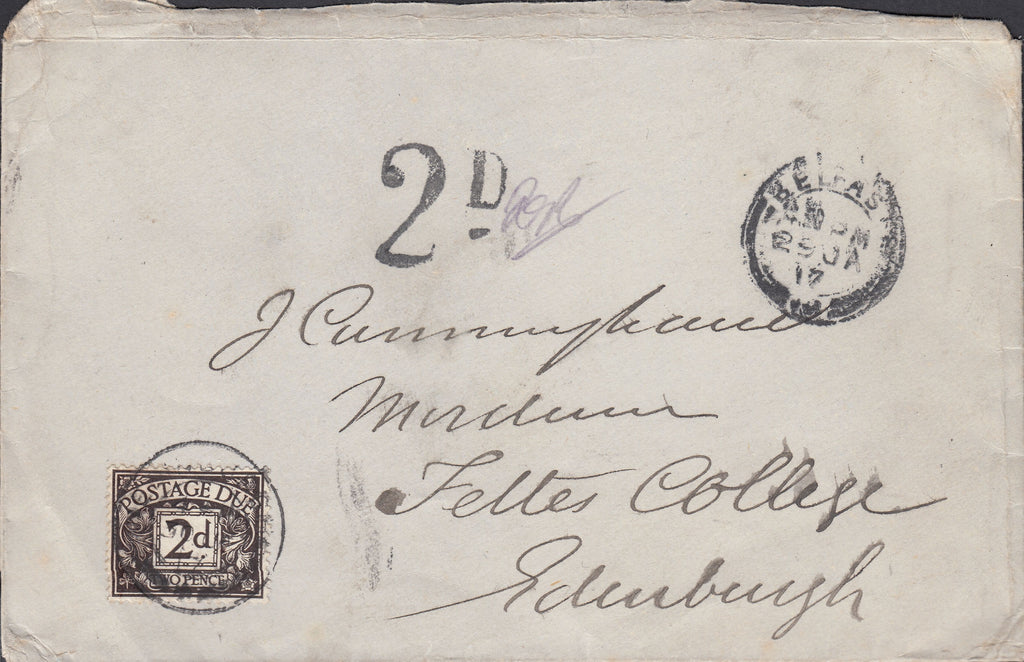 2D
BELFAS
PM
29 JA
17
J Cunningham
Fettes College
Edenburgh
POSTAGE DUE
2d
TWO PENCE